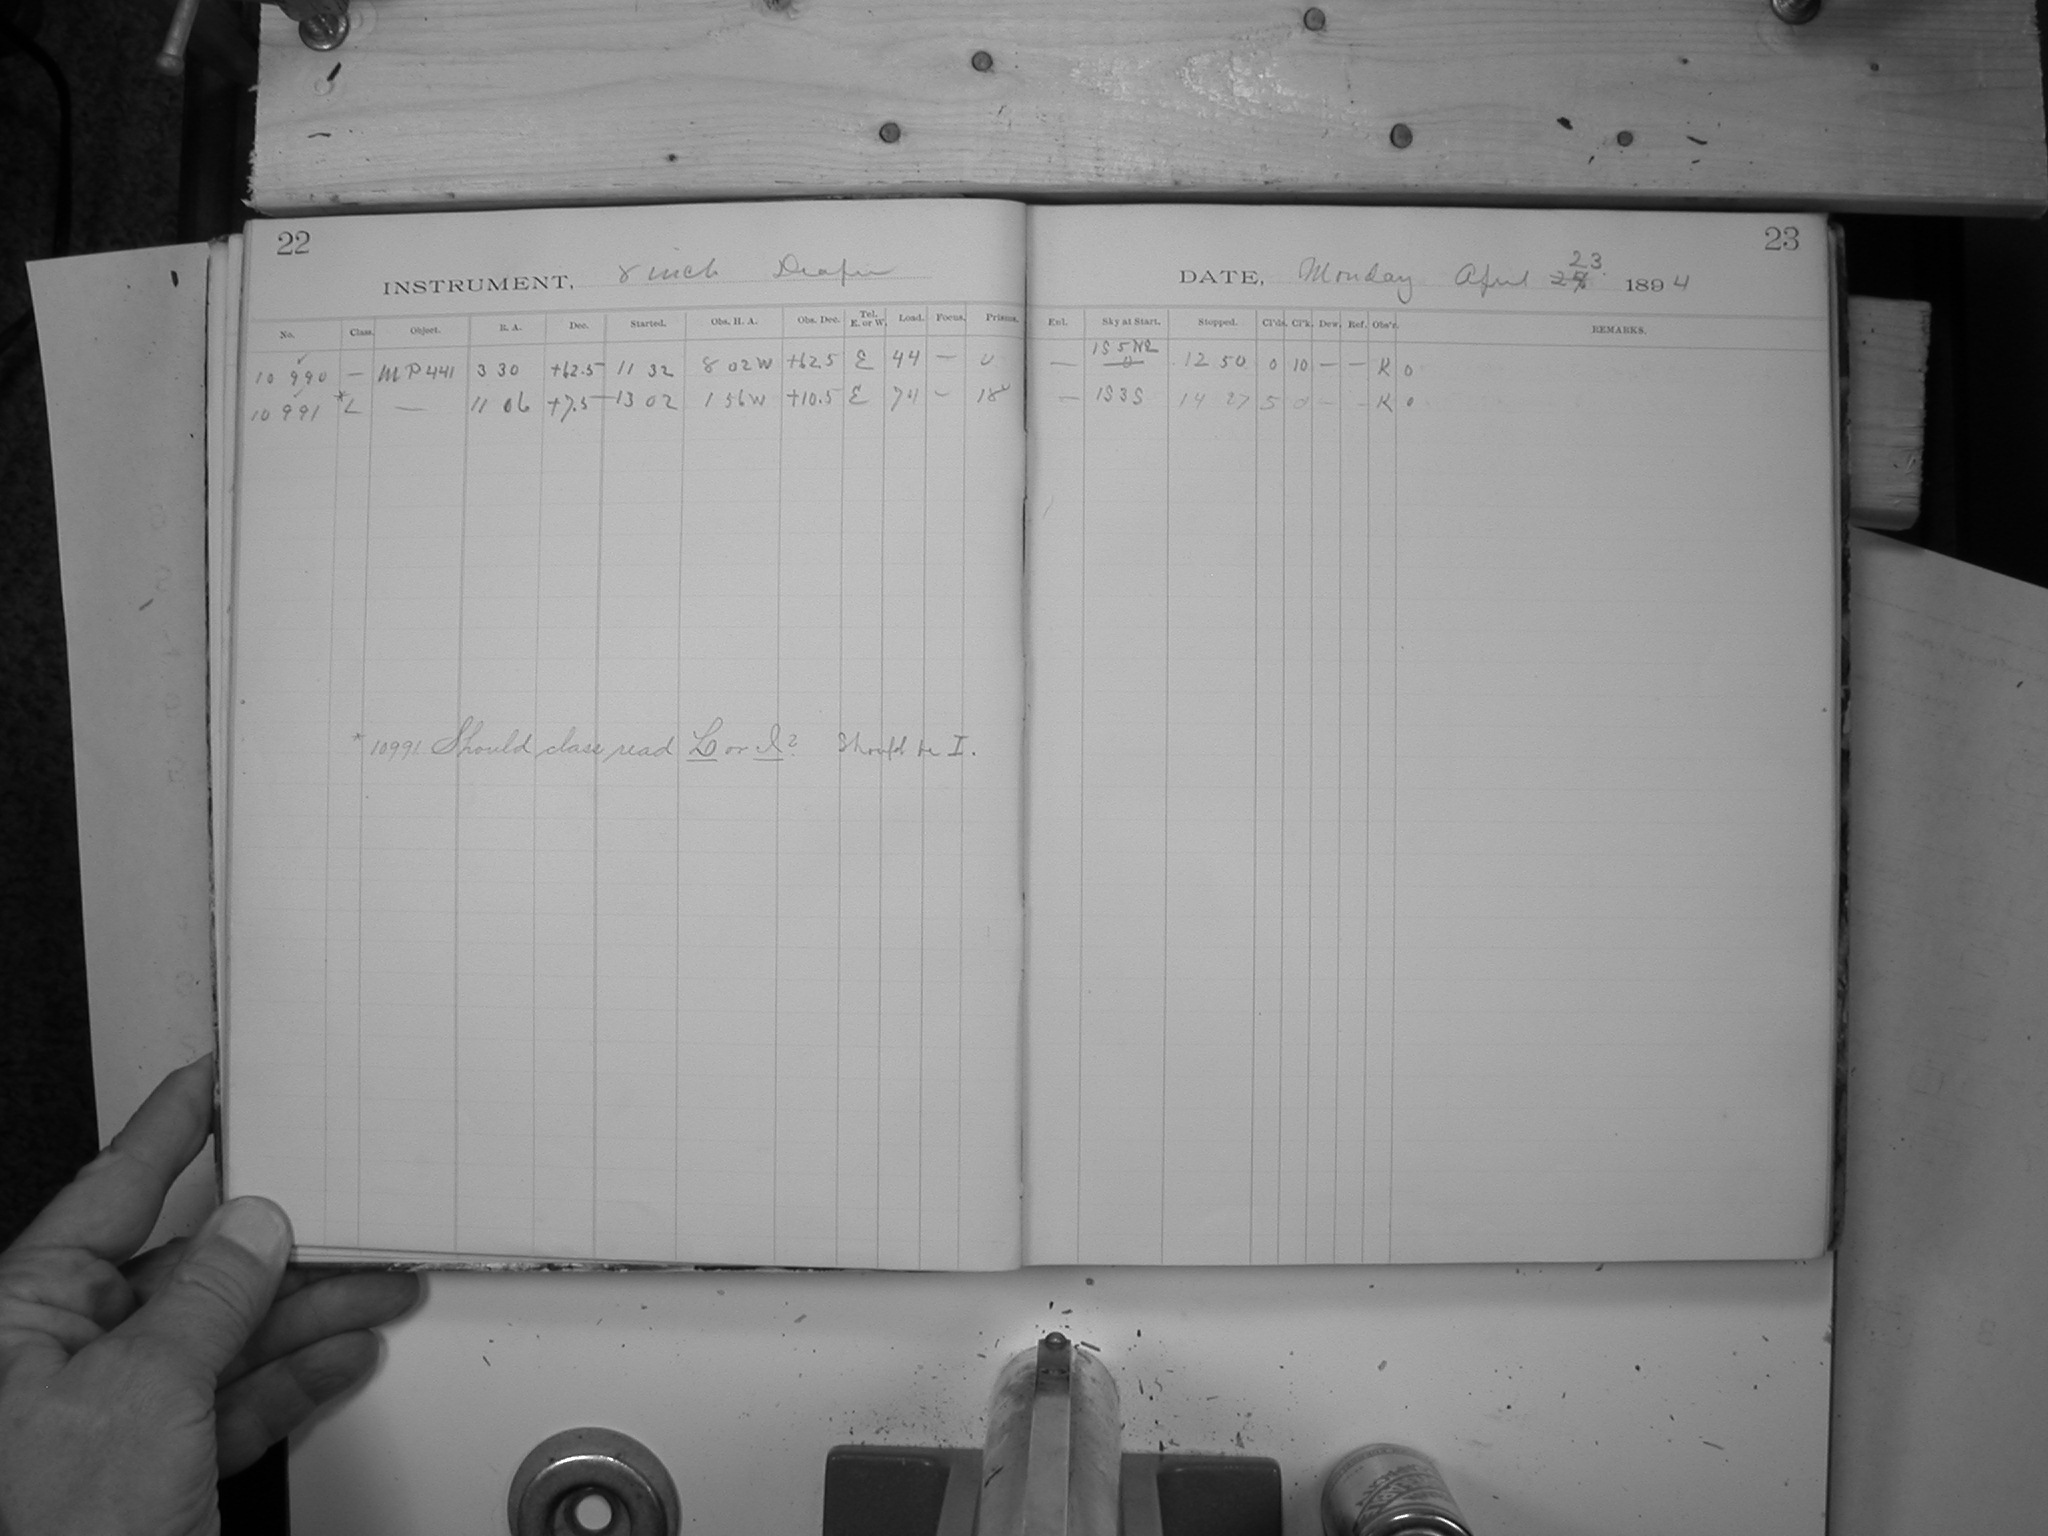 22
INSTRUMENT, 8 inch Draper
No. Class. Object. R. A. Dec. Started. Obs. H. A. Obs. Dec. Tel. E. or W. Load. Focus. Prisms.
10 990 — MP 441 3 30 +62.5 11 32 8 02 W +62.5 E 44 — 0
10 991 * L — 11 06 +7.5 13 02 1 56 W +10.5 E 74 — 18
* 10991 Should class read L or I? Should be I.
23
DATE, Monday April 23. 1894
Enl. Sky at Start. Stopped. Cl'ds. Cl'k. Dew. Ref. Obs'r. REMARKS.
— 1S 5 12 50 0 10 — — K 0
— 1S3S 14 27 5 0 — — K 0